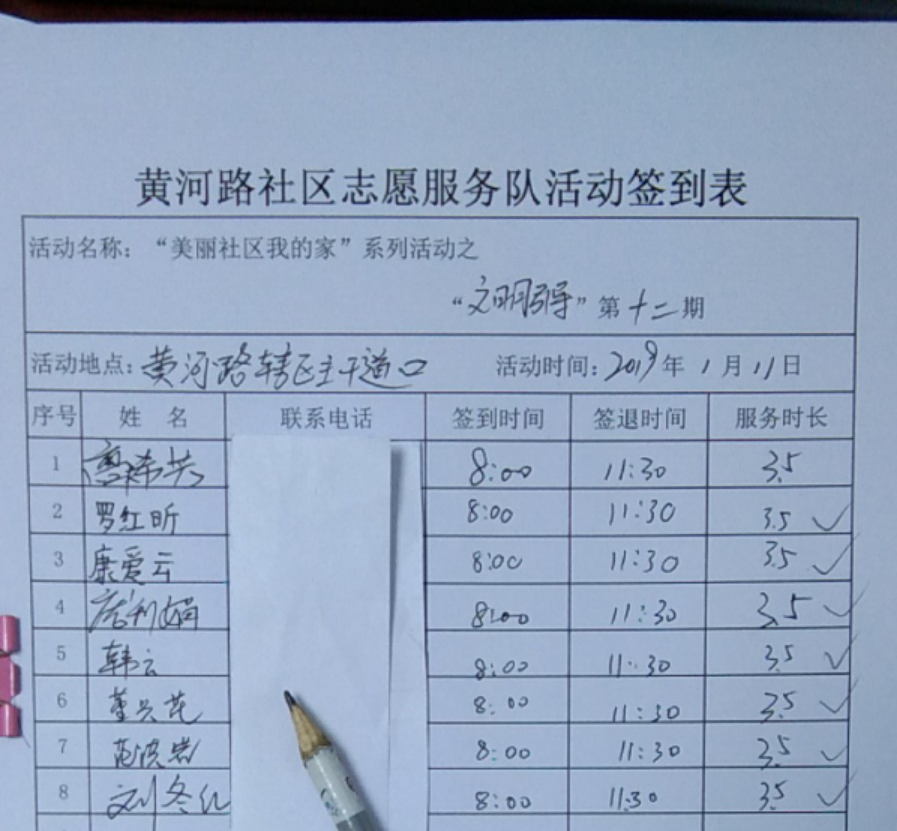 黄河路社区志愿服务队活动签到表
活动名称：“美丽社区我的家”系列活动之
“文明引导”第十二期
活动地点：黄河路辖区主干道口 活动时间：2019年1月11日
序号 姓名 联系电话 签到时间 签退时间 服务时长
1 8:00 11:30 3.5
2 罗红昕 8:00 11:30 3.5 ✓
3 康爱云 8:00 11:30 3.5 ✓
4 唐利娟 8:00 11:30 3.5 ✓
5 韩云 8:00 11:30 3.5 ✓
6 董兴花 8:00 11:30 3.5 ✓
7 范洪岩 8:00 11:30 3.5 ✓
8 刘冬红 8:00 11:30 3.5 ✓